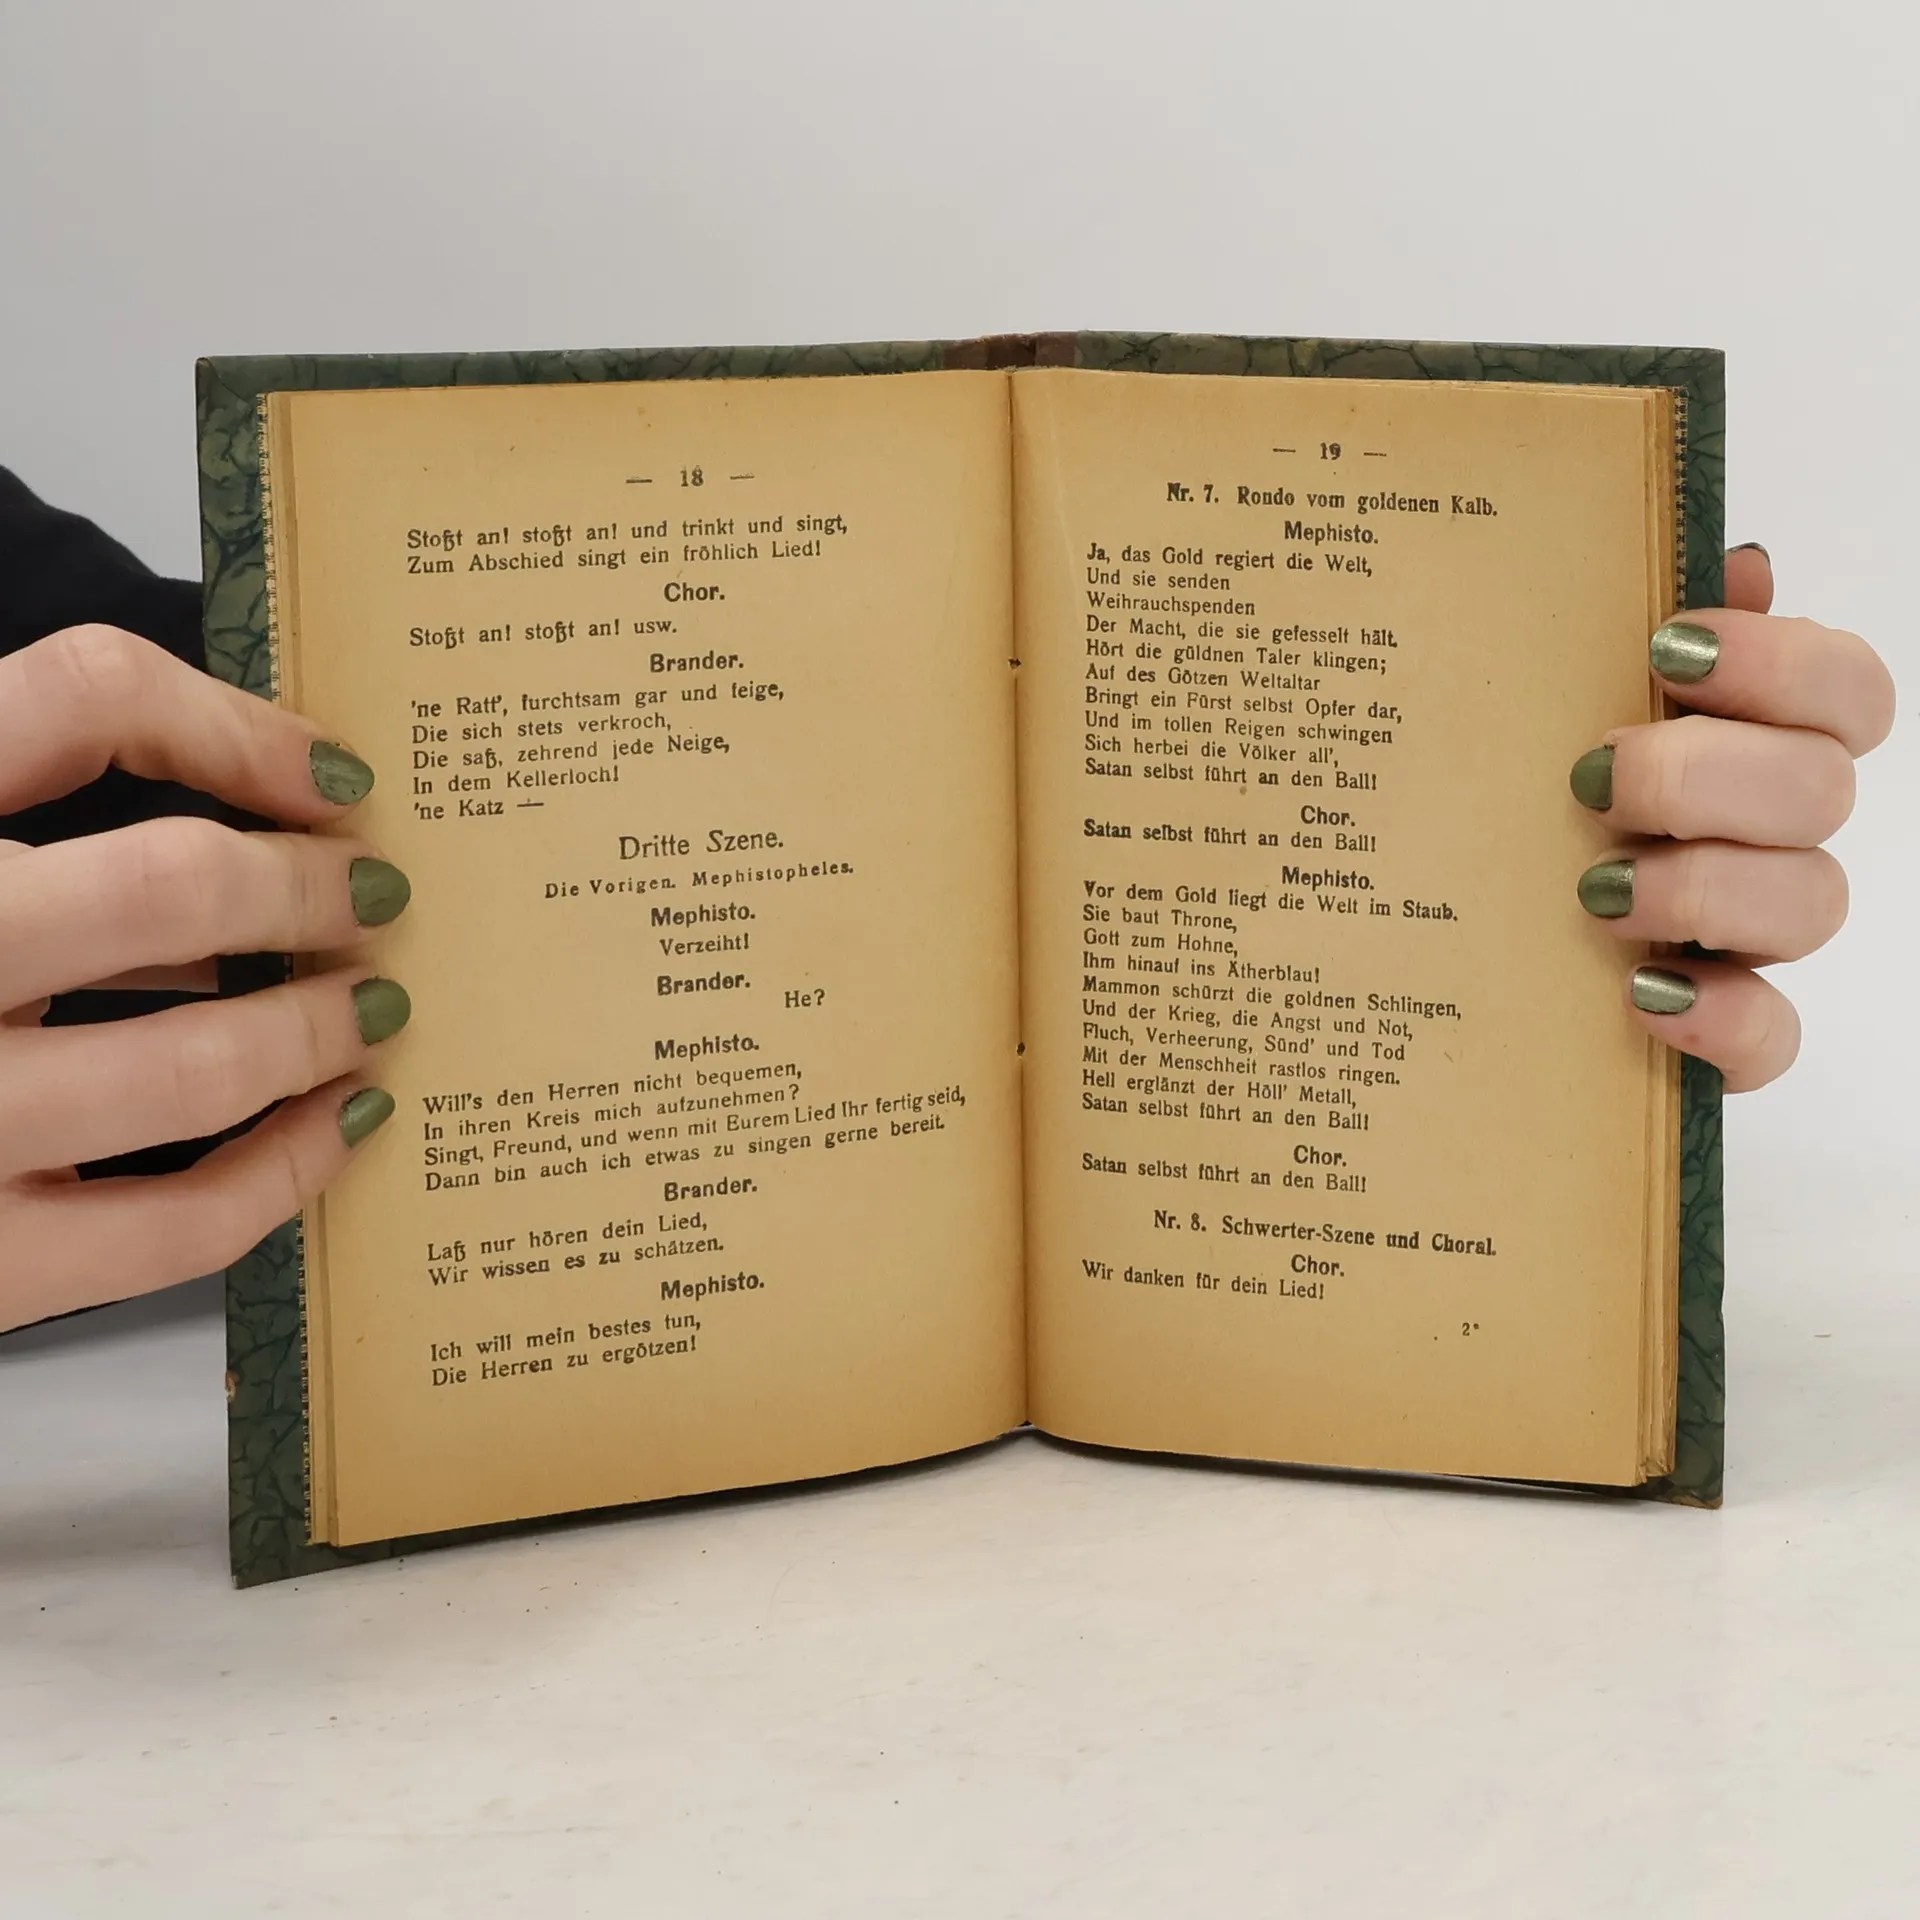 — 18 —
Stoßt an! stoßt an! und trinkt und singt,
Zum Abschied singt ein fröhlich Lied!
Chor.
Stoßt an! stoßt an! usw.
Brander.
'ne Ratt', furchtsam gar und feige,
Die sich stets verkroch,
Die saß, zehrend jede Neige,
In dem Kellerloch!
'ne Katz —
Dritte Szene.
Die Vorigen. Mephistopheles.
Mephisto.
Verzeiht!
Brander.
He?
Mephisto.
Will's den Herren nicht bequemen,
In ihren Kreis mich aufzunehmen?
Singt, Freund, und wenn mit Eurem Lied Ihr fertig seid,
Dann bin auch ich etwas zu singen gerne bereit.
Brander.
Laß nur hören dein Lied,
Wir wissen es zu schätzen.
Mephisto.
Ich will mein bestes tun,
Die Herren zu ergötzen!
— 19 —
Nr. 7. Rondo vom goldenen Kalb.
Mephisto.
Ja, das Gold regiert die Welt,
Und sie senden
Weihrauchspenden
Der Macht, die sie gefesselt hält.
Hört die güldnen Taler klingen;
Auf des Götzen Weltaltar
Bringt ein Fürst selbst Opfer dar,
Und im tollen Reigen schwingen
Sich herbei die Völker all',
Satan selbst führt an den Ball!
Chor.
Satan selbst führt an den Ball!
Mephisto.
Vor dem Gold liegt die Welt im Staub.
Sie baut Throne,
Gott zum Hohne,
Ihm hinauf ins Ätherblau!
Mammon schürzt die goldnen Schlingen,
Und der Krieg, die Angst und Not,
Fluch, Verheerung, Sünd' und Tod
Mit der Menschheit rastlos ringen.
Hell erglänzt der Höll' Metall,
Satan selbst führt an den Ball!
Chor.
Satan selbst führt an den Ball!
Nr. 8. Schwerter-Szene und Choral.
Chor.
Wir danken für dein Lied!
2*